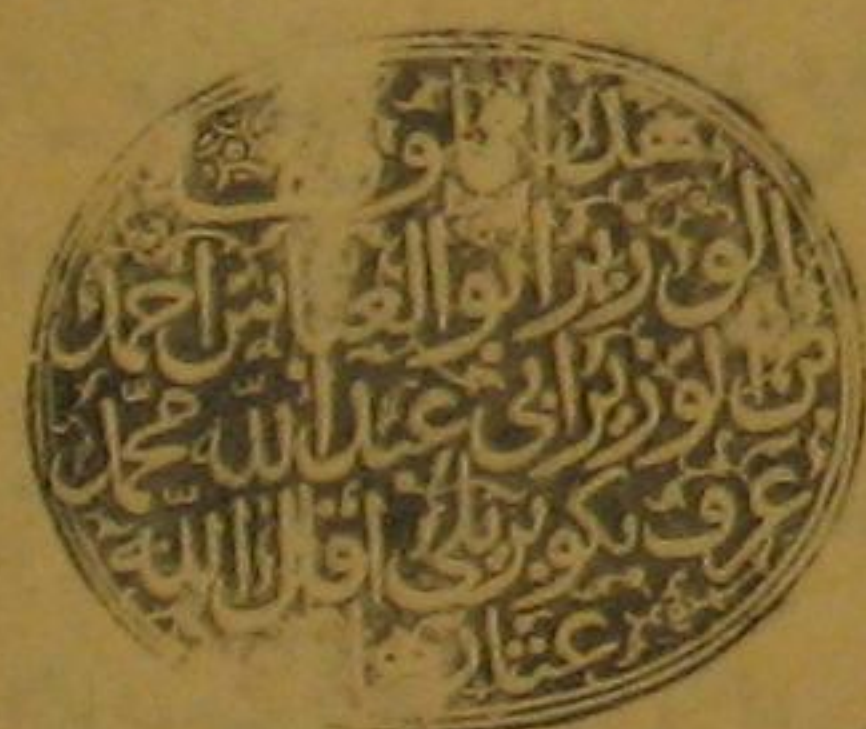 هذا
الوزير ابو العباس احمد
بن الوزير ابى عبد الله محمّد
عرف بكوبريلى اقال الله
عثار